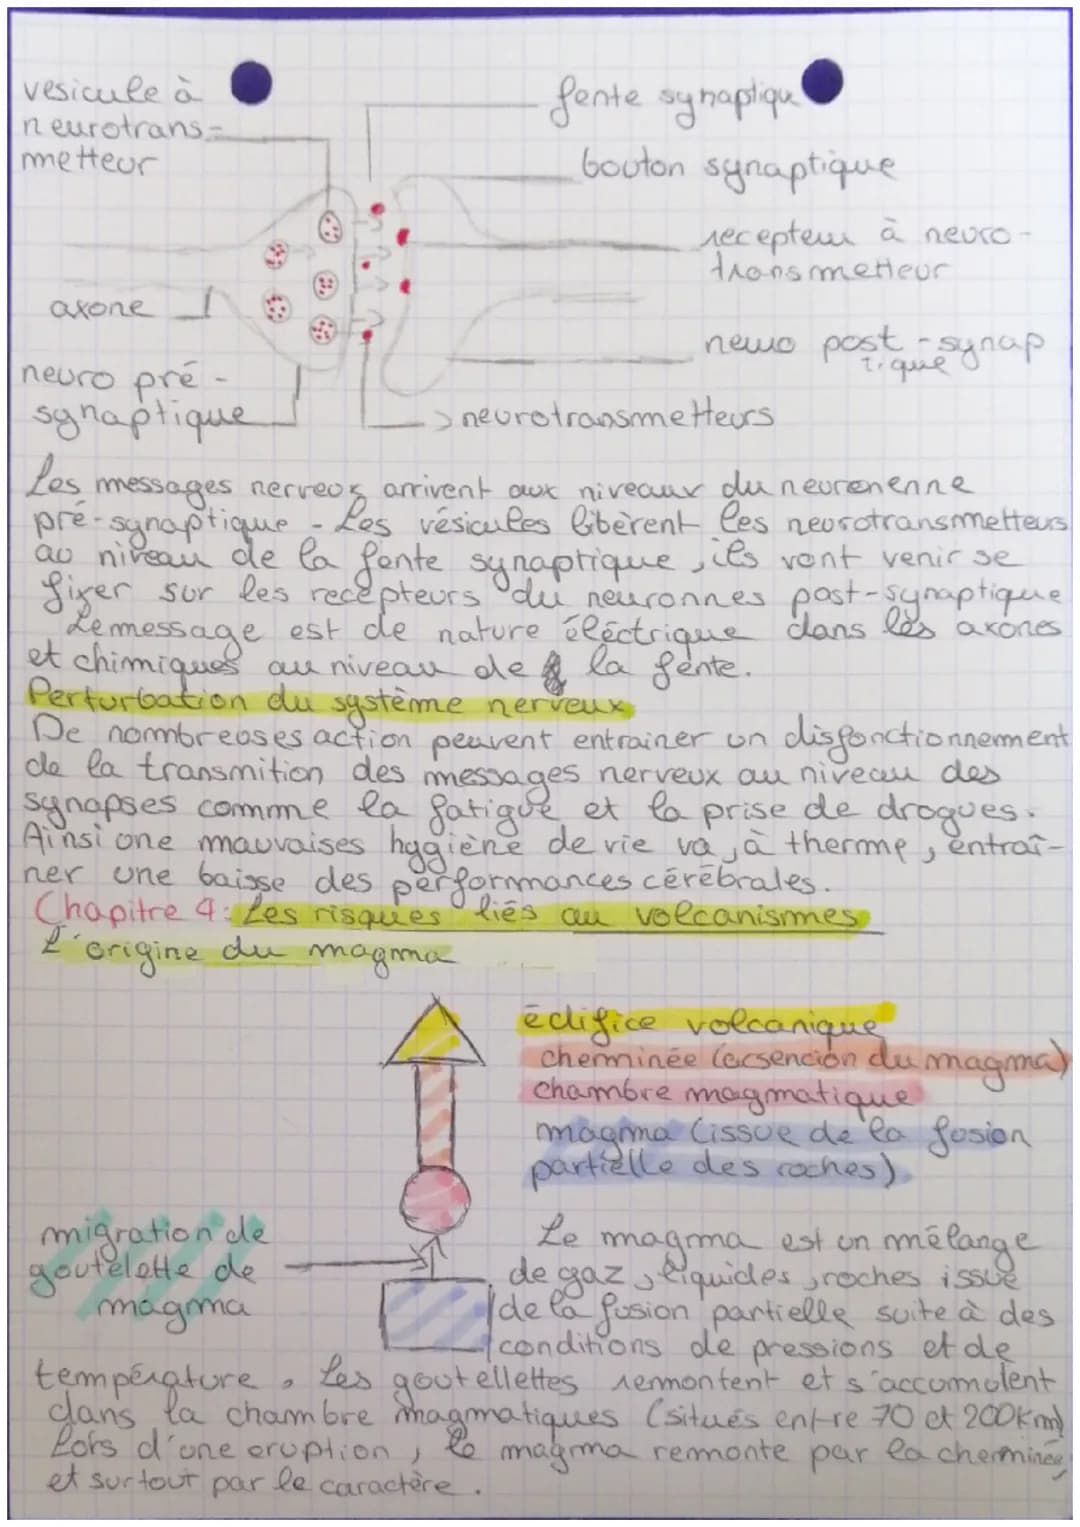 vesicule à
neurotrans-
metteur
fente synaptiqu
bouton synaptique
recepteur à neuro-
transmetteur
axone
neuro post-synap
tique
neuro pré-
synaptique
neurotransmetteurs
Les messages nerveux arrivent aux niveaux du neuronenne
pré-synaptique. Les vésicules libèrent les neurotransmetteurs
au niveau de la fente synaptique, ils vont venir se
fixer sur les recépteurs du neuronnes post-synaptique
Le message est de nature éléctrique dans les axones
et chimiques au niveau de la fente.
Perturbation du système nerveux
De nombreuses action peuvent entrainer un disfonctionnement
de la transmition des messages nerveux au niveau des
synapses comme la fatigue et la prise de drogues.
Ainsi une mauvaises hygiène de vie va, à therme, entraî-
ner une baisse des performances cérébrales.
Chapitre 4: Les risques liés au volcanismes
L'origine du magma
édifice volcanique
cheminée (acsencion du magma)
chambre magmatique
magma (issue de la fusion
partielle des roches)
migration de
goutelette de
magma
Le magma est un mélange
de gaz, liquides, roches issue
de la fusion partielle suite à des
conditions de pressions et de
température. Les goutellettes remontent et s'accumulent
dans la chambre magmatiques (situés entre 70 et 200km)
Lors d'une eruption, le magma remonte par la cheminée,
et surtout par le caractère.